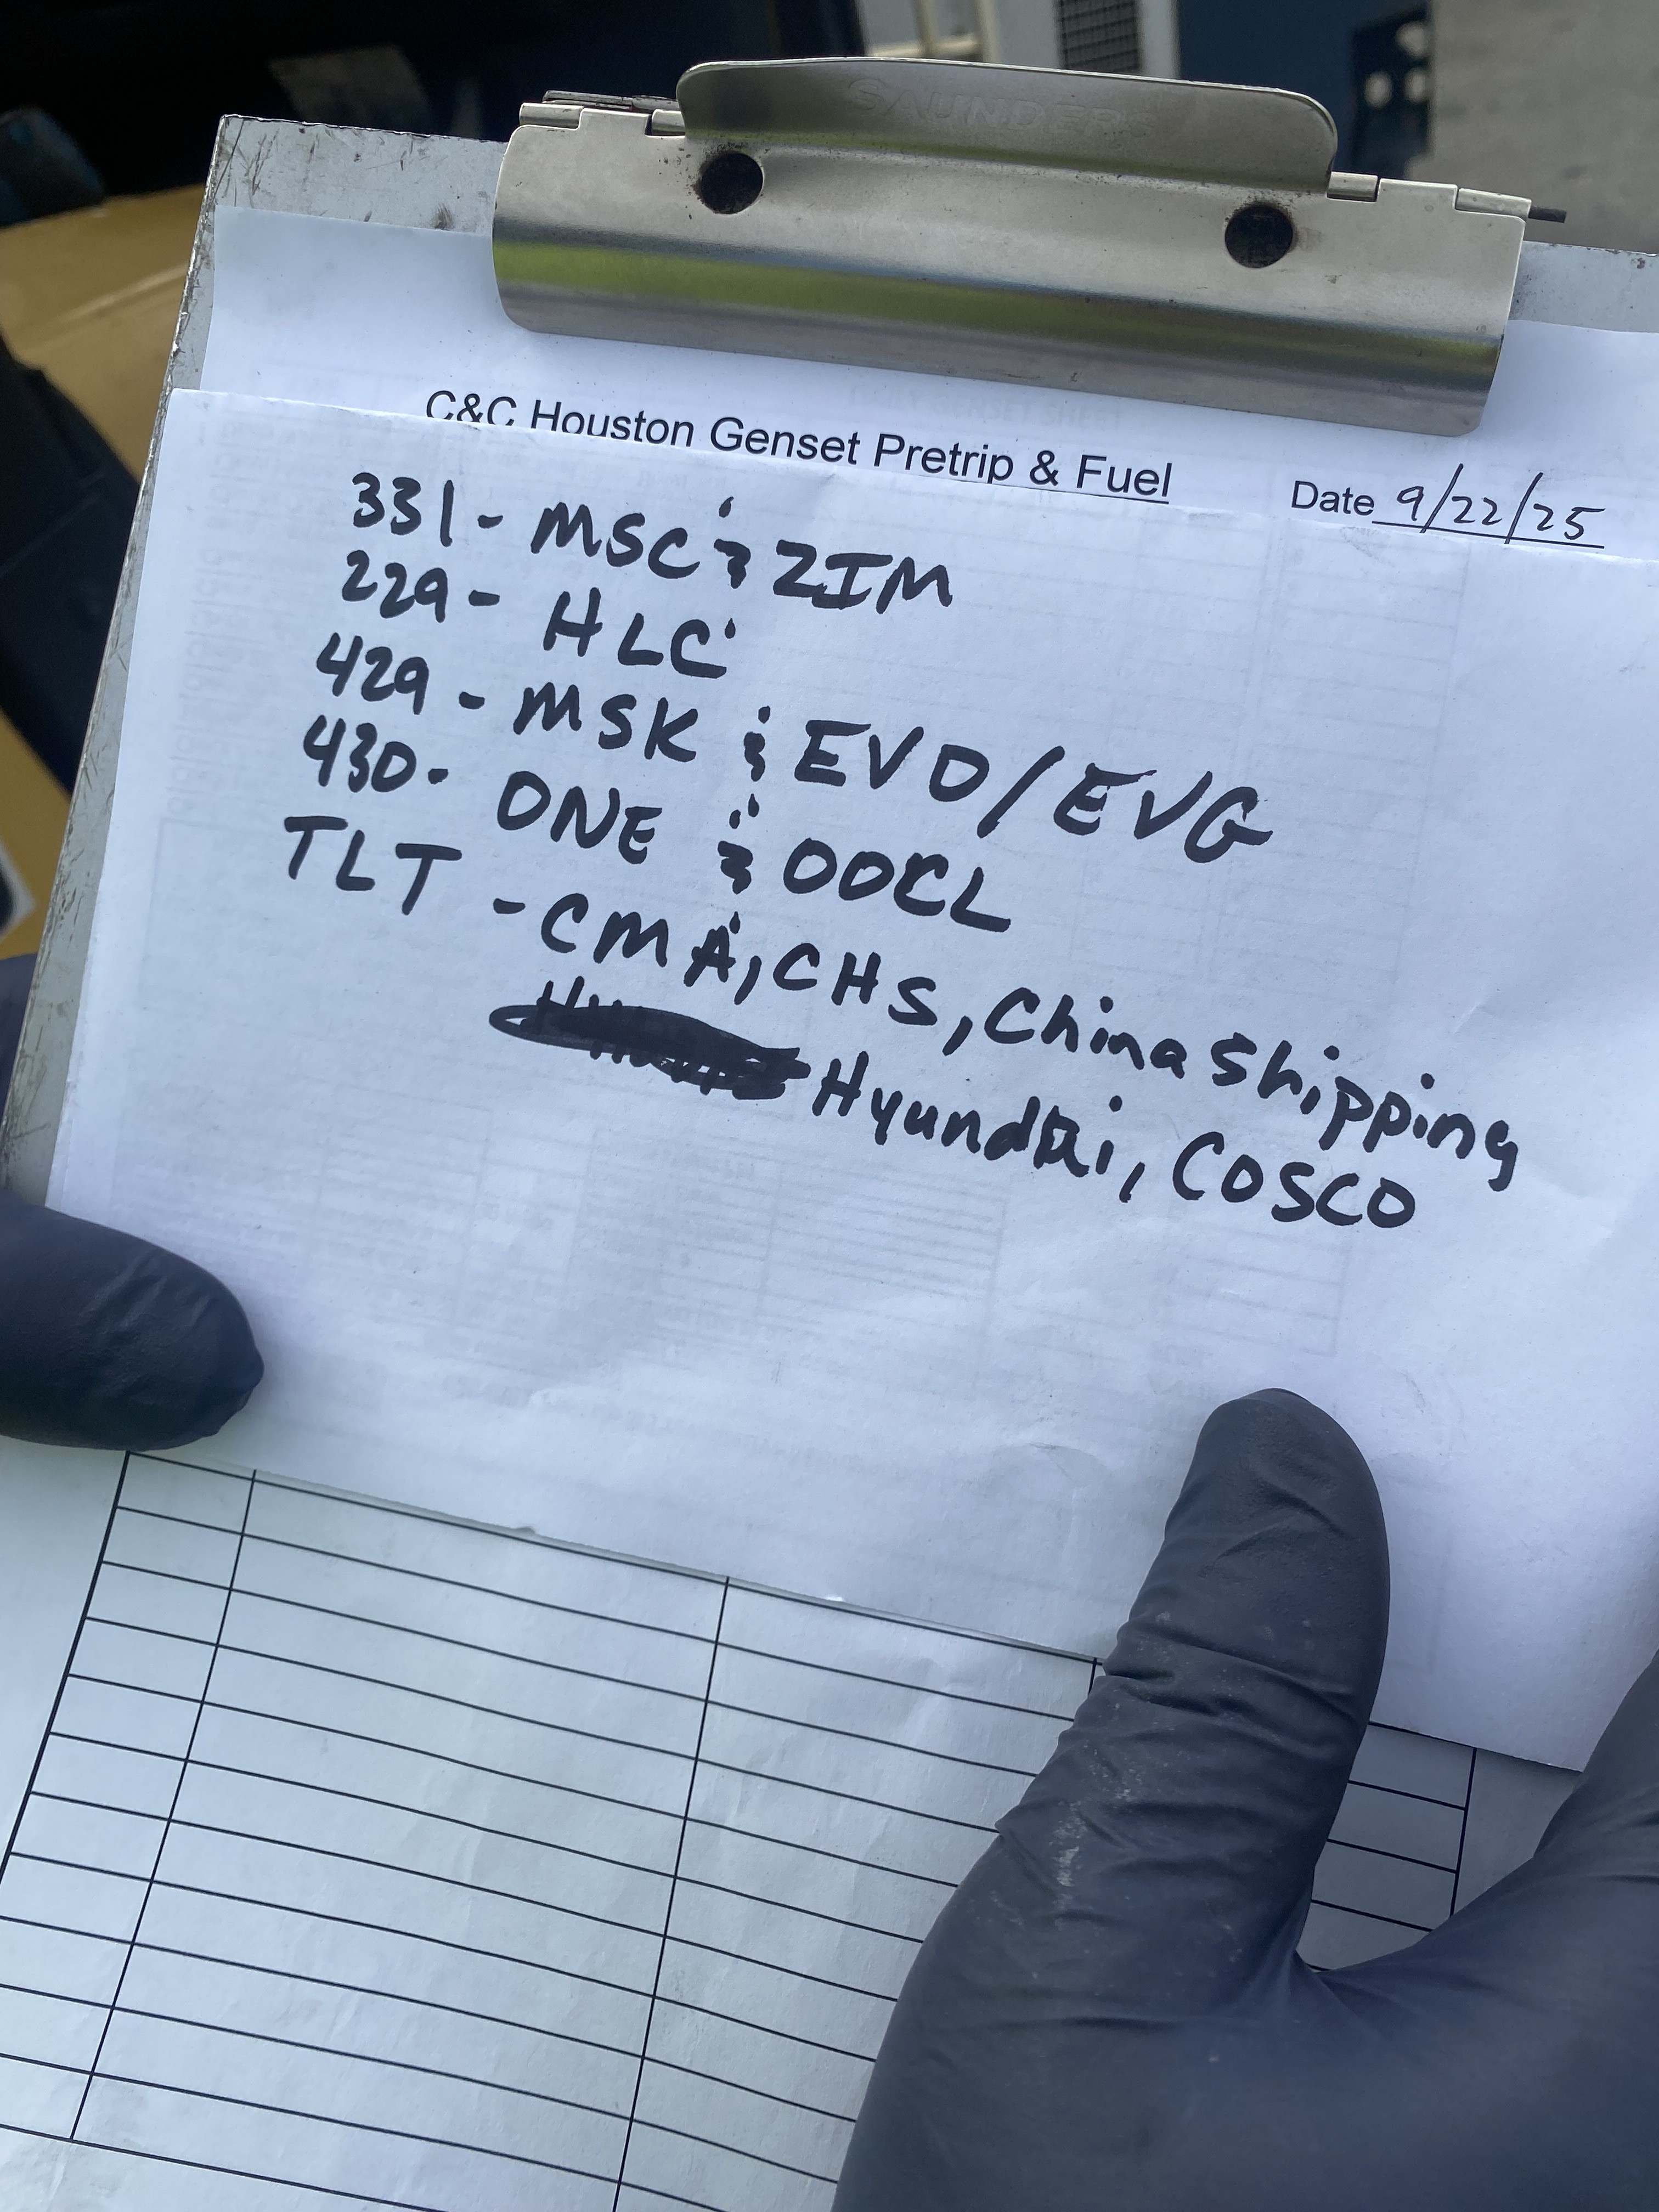 SAUNDERS
C&C Houston Genset Pretrip & Fuel
Date 9/22/25
331- MSC & ZIM
229- HLC
429 - MSK & EVO/EVG
430- ONE & OOCL
TLT - CMA, CHS, China Shipping
Hyundai, COSCO